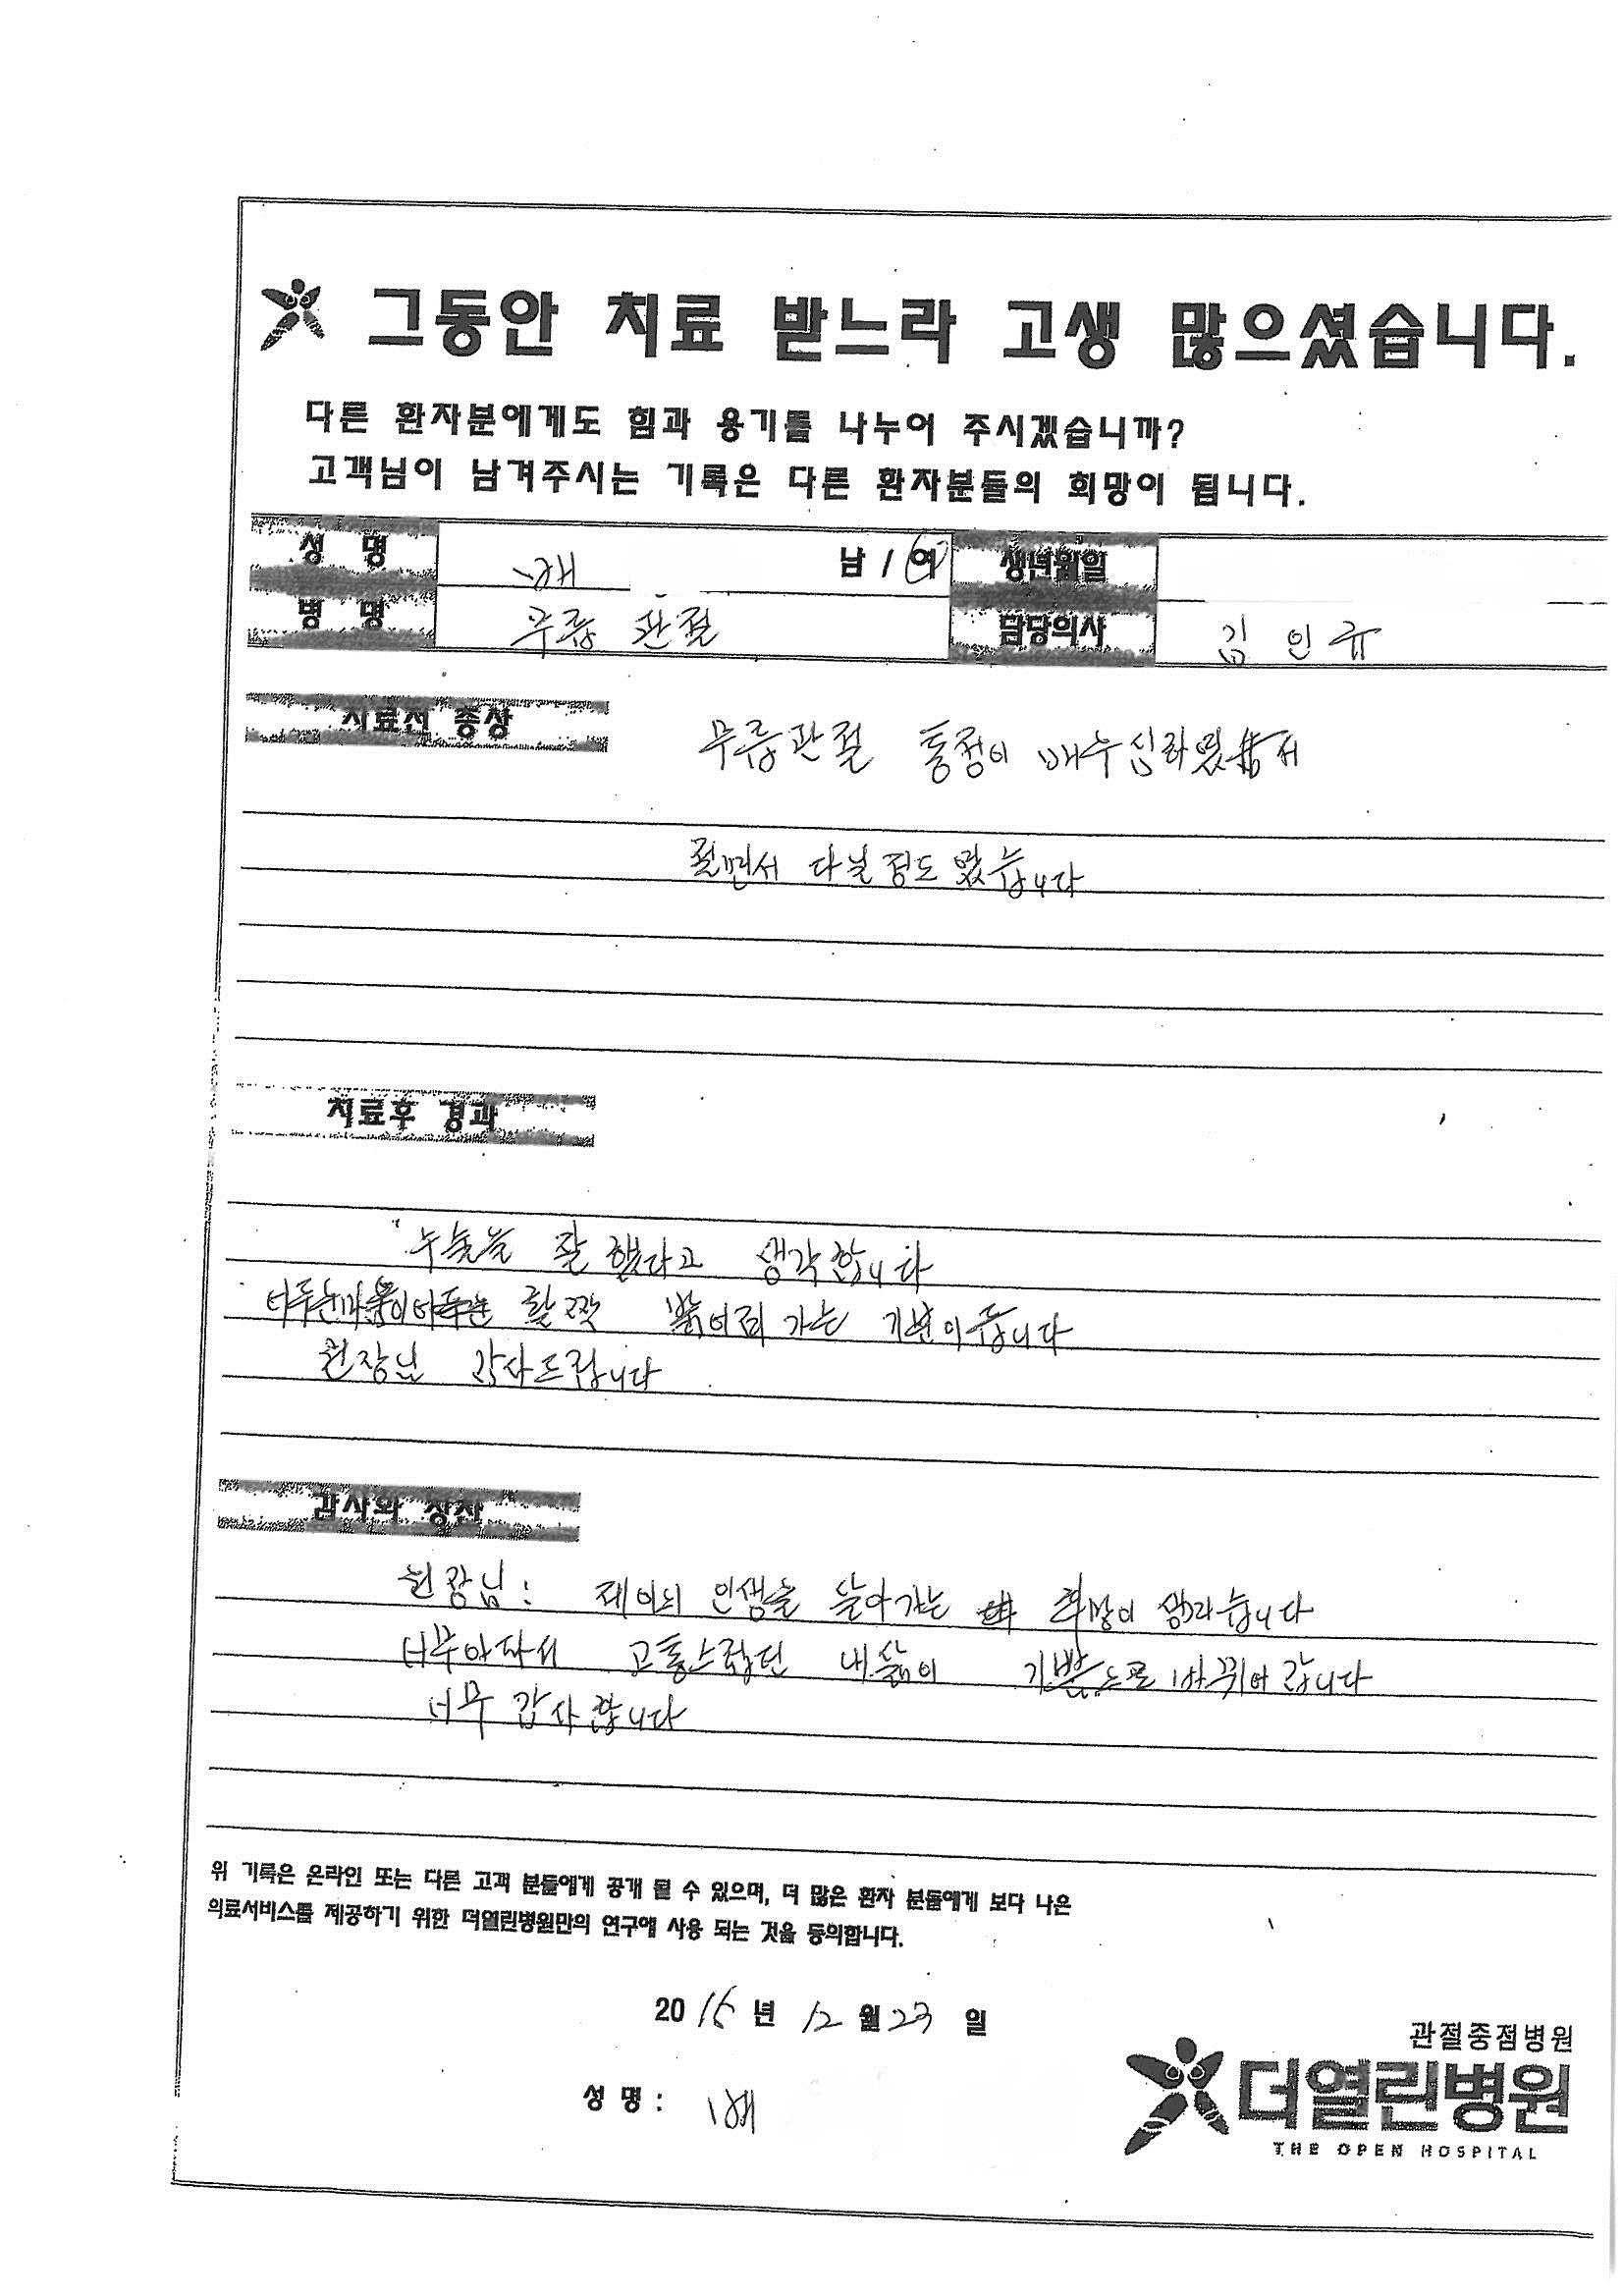 그동안 치료 받느라 고생 많으셨습니다.
다른 환자분에게도 힘과 용기를 나누어 주시겠습니까?
고객님이 남겨주시는 기록은 다른 환자분들의 희망이 됩니다.
성 명 배 남 / 여 생년월일
병 명 무릎 관절 담당의사 김 인 규
치료전 증상 무릎관절 통정이 매우 심하였 서
절면서 다닐 정도 였습니다
치료후 경과
수술을 잘 했다고 생각합니다
활짝 밝어져 가는 기분이듭니다
원장님 감사드립니다
감사와 칭찬
원장님: 인생을 살아가는 희망이 생겨습니다
너무아파서 고통스럽던 내삶이 기쁨으로 바뀌어 갑니다
너무 감사합니다
위 기록은 온라인 또는 다른 고객 분들에게 공개 될 수 있으며, 더 많은 환자 분들에게 보다 나은
의료서비스를 제공하기 위한 더열린병원만의 연구에 사용 되는 것을 동의합니다.
2015 년 12 월 23 일
성 명 : 배
관절중점병원
더열린병원
THE OPEN HOSPITAL